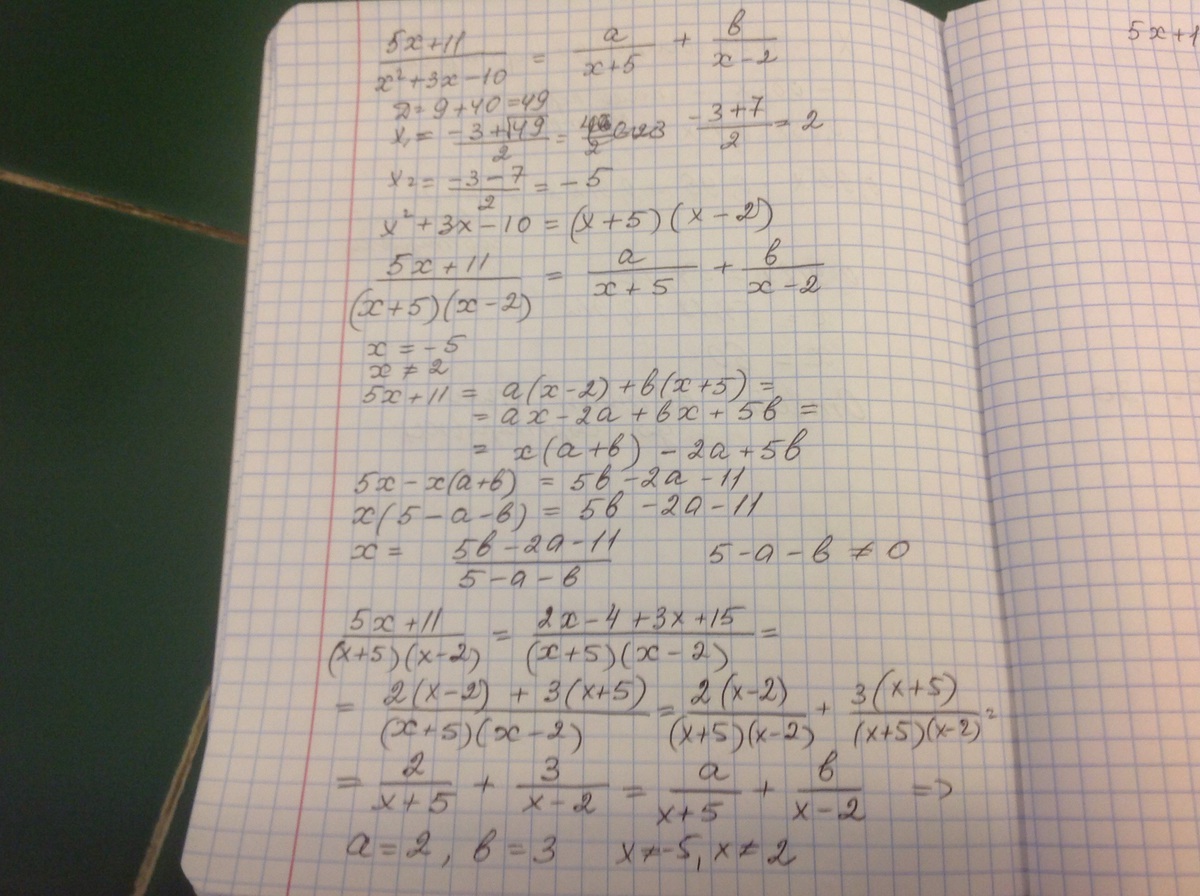 (5x+11)/(x²+3x-10) = a/(x+5) + в/(x-2)
5x+1
D=9+40=49
x₁= (-3+√49)/2 = (-3+7)/2 = 2
x₂= (-3-7)/2 = -5
x²+3x-10=(x+5)(x-2)
(5x+11)/((x+5)(x-2)) = a/(x+5) + в/(x-2)
x=-5
x≠2
5x+11= a(x-2)+в(x+5)=
= ax-2a+вx+5в=
= x(a+в)-2a+5в
5x-x(a+в)=5в-2a-11
x(5-a-в)=5в-2a-11
x= (5в-2a-11)/(5-a-в) 5-a-в≠0
(5x+11)/((x+5)(x-2)) = (2x-4+3x+15)/((x+5)(x-2)) =
= (2(x-2)+3(x+5))/((x+5)(x-2)) = 2(x-2)/((x+5)(x-2)) + 3(x+5)/((x+5)(x-2)) =
= 2/(x+5) + 3/(x-2) = a/(x+5) + в/(x-2) =>
a=2, в=3 x≠-5, x≠2